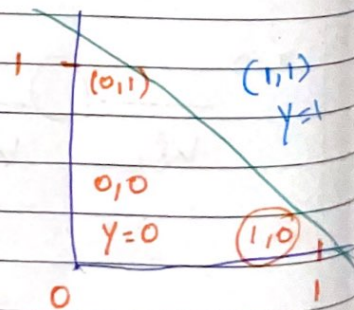 1
(0,1)
(1,1)
y=1
0,0
y=0
1,0
0
1